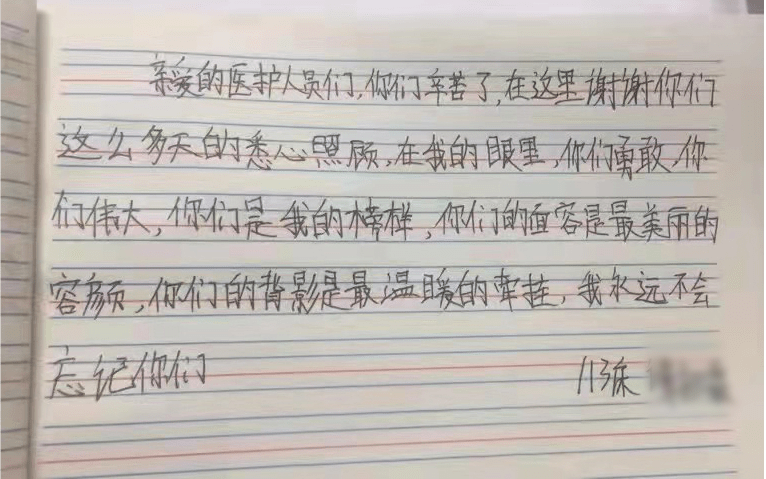 亲爱的医护人员们,你们辛苦了,在这里谢谢你们
这么多天的悉心照顾,在我的眼里,你们勇敢,你
们伟大,你们是我的榜样,你们的面容是最美丽的
容颜,你们的背影是最温暖的牵挂,我永远不会
忘记你们 113床